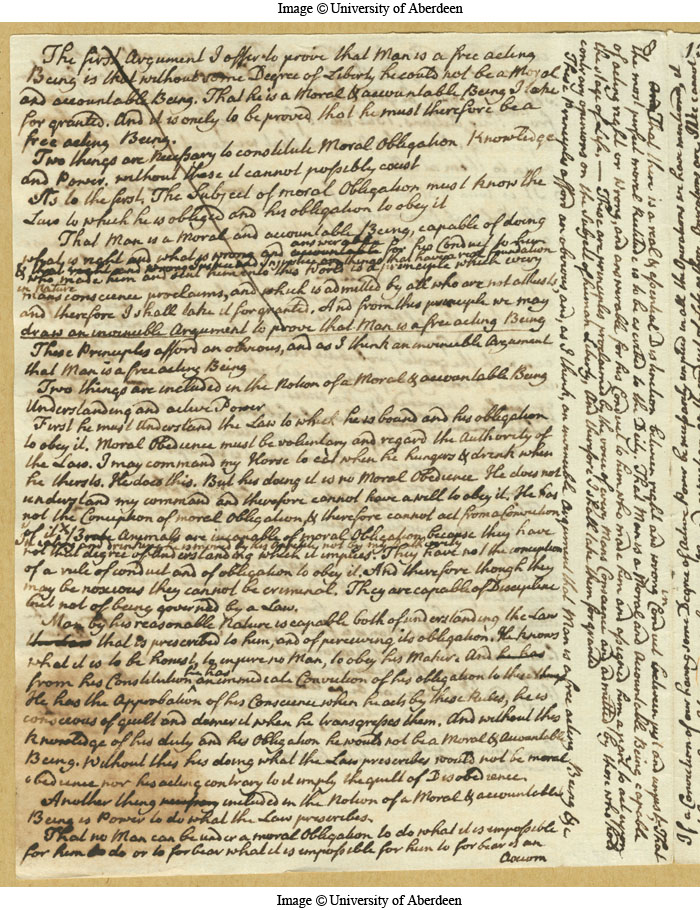 Image © University of Aberdeen
The first Argument I offer to prove that Man is a free acting
Being is that without some Degree of Liberty he could not be a Moral
and accountable Being. That he is a Moral & accountable Being I take
for granted. And it is onely to be proved that he must therefore be a
free acting Being.
Two things are necessary to constitute Moral Obligation Knowledge
and Power. without these it cannot possibly exist
As to the first. The Subject of moral Obligation must know the
Law to which he is obliged and his obligation to obey it
That Man is a Moral and accountable Being, capable of doing
answerable
what is right and what is wrong and accountable for his Conduct to him
& that right and wrong things that have a real foundation
who made him and sent him into this World is a principle which every
in Nature
mans conscience proclaims, and which is admitted by all who are not atheists
and therefore I shall take it for granted. And from this principle we may
draw an invincible Argument to prove that Man is a free acting Being
These Principles afford an obvious, and as I think an invincible Argument
that Man is a free acting Being
Two things are included in the Notion of a Moral & accountable Being
Understanding and active Power
First he must Understand the Law to which he is bound and his obligation
to obey it. Moral Obedience must be voluntary and regard the Authority of
the Law. I may command my Horse to eat when he hungers & drink when
he thirsts. He does this. But his doing it is no Moral Obedience. He does not
understand my command and therefore cannot have a will to obey it. He has
not the Conception of moral Obligation, & therefore cannot act from a Conviction
of it. Brute Animals are incapable of moral Obligation because they have
In eating and drinking he is moved by his appetite
not that degree of Understanding which it implies. They have not the conception
of a rule of conduct and of obligation to obey it. And therefore though they
may be noxious they cannot be criminal. They are capable of Discipline
but not of being governed by a Law.
Man by his reasonable Nature is capable both of understanding the Law
that is prescribed to him, and of perceiving its obligation. He knows
what it is to be honest, to injure no Man, to obey his Maker. And he has
he has
from his Constitution an immediate Conviction of his obligation to these things
He has the Approbation of his Conscience when he acts by these Rules, he is
conscious of guilt and demerit when he transgresses them. And without this
Knowledge of his duty and his Obligation he would not be a Moral & accountable
Being. Without this his doing what the Law prescribes would not be moral
obedience nor his acting contrary to it imply the guilt of Disobedience.
Another thing necessary included in the Notion of a Moral & accountable
Being is Power to do what the Law prescribes.
That no Man can be under a moral Obligation to do what it is impossible
for him to do or to forbear what it is impossible for him to forbear is an
Axiom
8 That there is a real & essential Distinction between right and wrong Conduct between just and unjust, That
the most perfect moral Rectitude is to be ascribed to the Deity. That Man is a Moral and Accountable Being capable
of acting right or wrong, and answerable for his Conduct to him who made him and assigned him a part to act upon
the stage of Life. — These are principles proclaimed by the voice of every Mans Conscience and admitted by those who hold
contrary opinions on the Subject of human Liberty. And therefore I shall take them for granted
These Principles afford an obvious and, as I think, an invincible Argument that Man is a free acting Being &c
If a Conviction of our having some Degree of active Power be necessarily implied in all the Operations we have mentioned
Image © University of Aberdeen